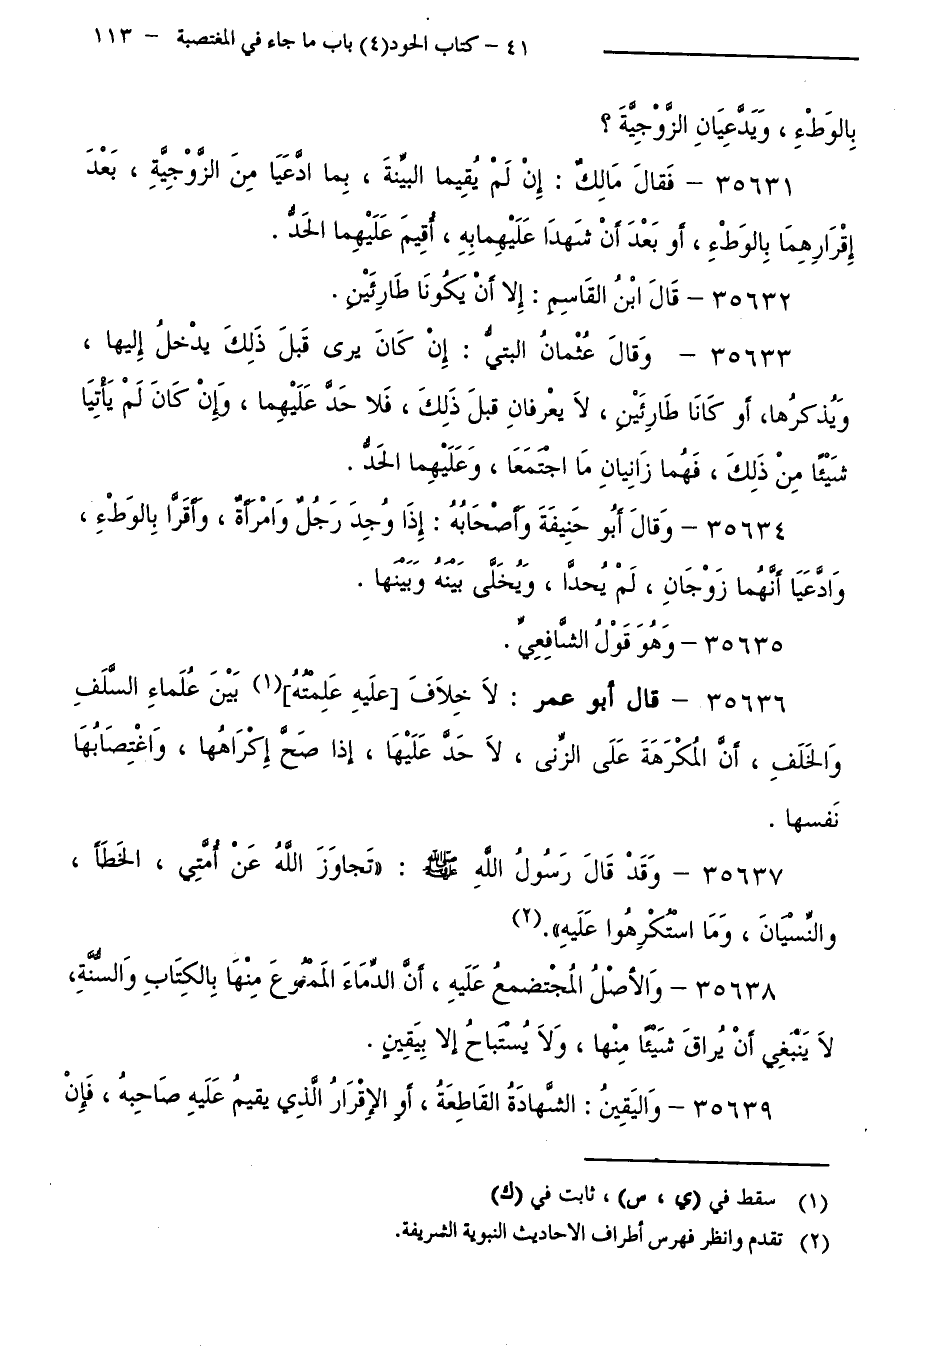 ٤١ – كتاب الحود(٤) باب ما جاء في المغتصبة – ١١٣
بِالوَطْءِ ، وَيَدَّعِيَانِ الزَّوْجِيَّةَ ؟
٣٥٦٣١ – فَقالَ مَالِكٌ : إِنْ لَمْ يُقِيما البيِّنةَ ، بِما ادَّعَيَا مِنَ الزَّوْجِيَّةِ ، بَعْدَ
إِقْرَارِهِمَا بِالوَطْءِ ، أو بَعْدَ أنْ شَهدَا عَلَيْهِمابِهِ ، أُقِيمَ عَلَيْهِما الحَدُّ .
٣٥٦٣٢ – قَالَ ابْنُ القَاسِمِ : إِلا أنْ يَكُونَا طَارِئَيْنِ .
٣٥٦٣٣ – وَقَالَ عُثْمانُ البتيُّ : إِنْ كَانَ يرى قَبلَ ذَلِكَ يدْخلُ إِليها ،
وَيُذكرُها، أو كَانَا طَارِئَيْنِ ، لاَ يعْرفانِ قبلَ ذَلِكَ ، فَلا حَدَّ عَلَيْهِما ، وَإِنْ كَانَ لَمْ يَأْتيَا
شَيْئًا مِنْ ذَلِكَ ، فَهُما زَانِيانِ مَا اجْتَمَعَا ، وَعَلَيْهِما الحَدُّ .
٣٥٦٣٤ – وَقَالَ أَبُو حَنِيفَةَ وَأَصْحَابُهُ : إِذَا وُجِدَ رَجُلٌ وَامْرَأَةٌ ، وَأَقَرَّا بِالوَطْءِ ،
وَادَّعَيَا أَنَّهُما زَوْجَانِ ، لَمْ يُحدَّا ، وَيُخَلَّى بَيْنَهُ وَبَيْنَها .
٣٥٦٣٥ – وَهُوَ قَوْلُ الشَّافِعِيِّ .
٣٥٦٣٦ – قال أبو عمر : لاَ خِلاَفَ [عَلَيهِ عَلِمْتُهُ](١) بَيْنَ عُلَماءِ السَّلَفِ
وَالخَلَفِ ، أَنَّ المُكْرَهَةَ عَلَى الزِّنى ، لاَ حَدَّ عَلَيْهَا ، إذا صَحَّ إِكْرَاهُها ، وَاغْتِصَابُهَا
نَفسها .
٣٥٦٣٧ – وَقَدْ قَالَ رَسُولُ اللَّهِ ﷺ : «تَجاوَزَ اللَّهُ عَنْ أُمَّتِي ، الخَطَأَ ،
والنِّسْيَانَ ، وَمَا اسْتُكْرِهُوا عَلَيهِ».(٢)
٣٥٦٣٨ – وَالأصْلُ المُجْتضمعُ عَلَيهِ ، أَنَّ الدِّمَاءَ المَمْنُوعَ مِنْهَا بِالكِتَابِ وَالسُّنَّةِ،
لاَ يَنْبَغِي أنْ يُراقَ شَيْئًا مِنْها ، وَلاَ يُسْتَباحُ إلا بِيَقِينٍ .
٣٥٦٣٩ – وَاليَقِينُ : الشَّهادَةُ القَاطِعَةُ ، أوِ الإِقْرَارُ الَّذِي يقيمُ عَلَيهِ صَاحِبهُ ، فَإِنْ
(١) سقط في (ي ، س) ، ثابت في (ك)
(٢) تقدم وانظر فهرس أطراف الاحاديث النبوية الشريفة.